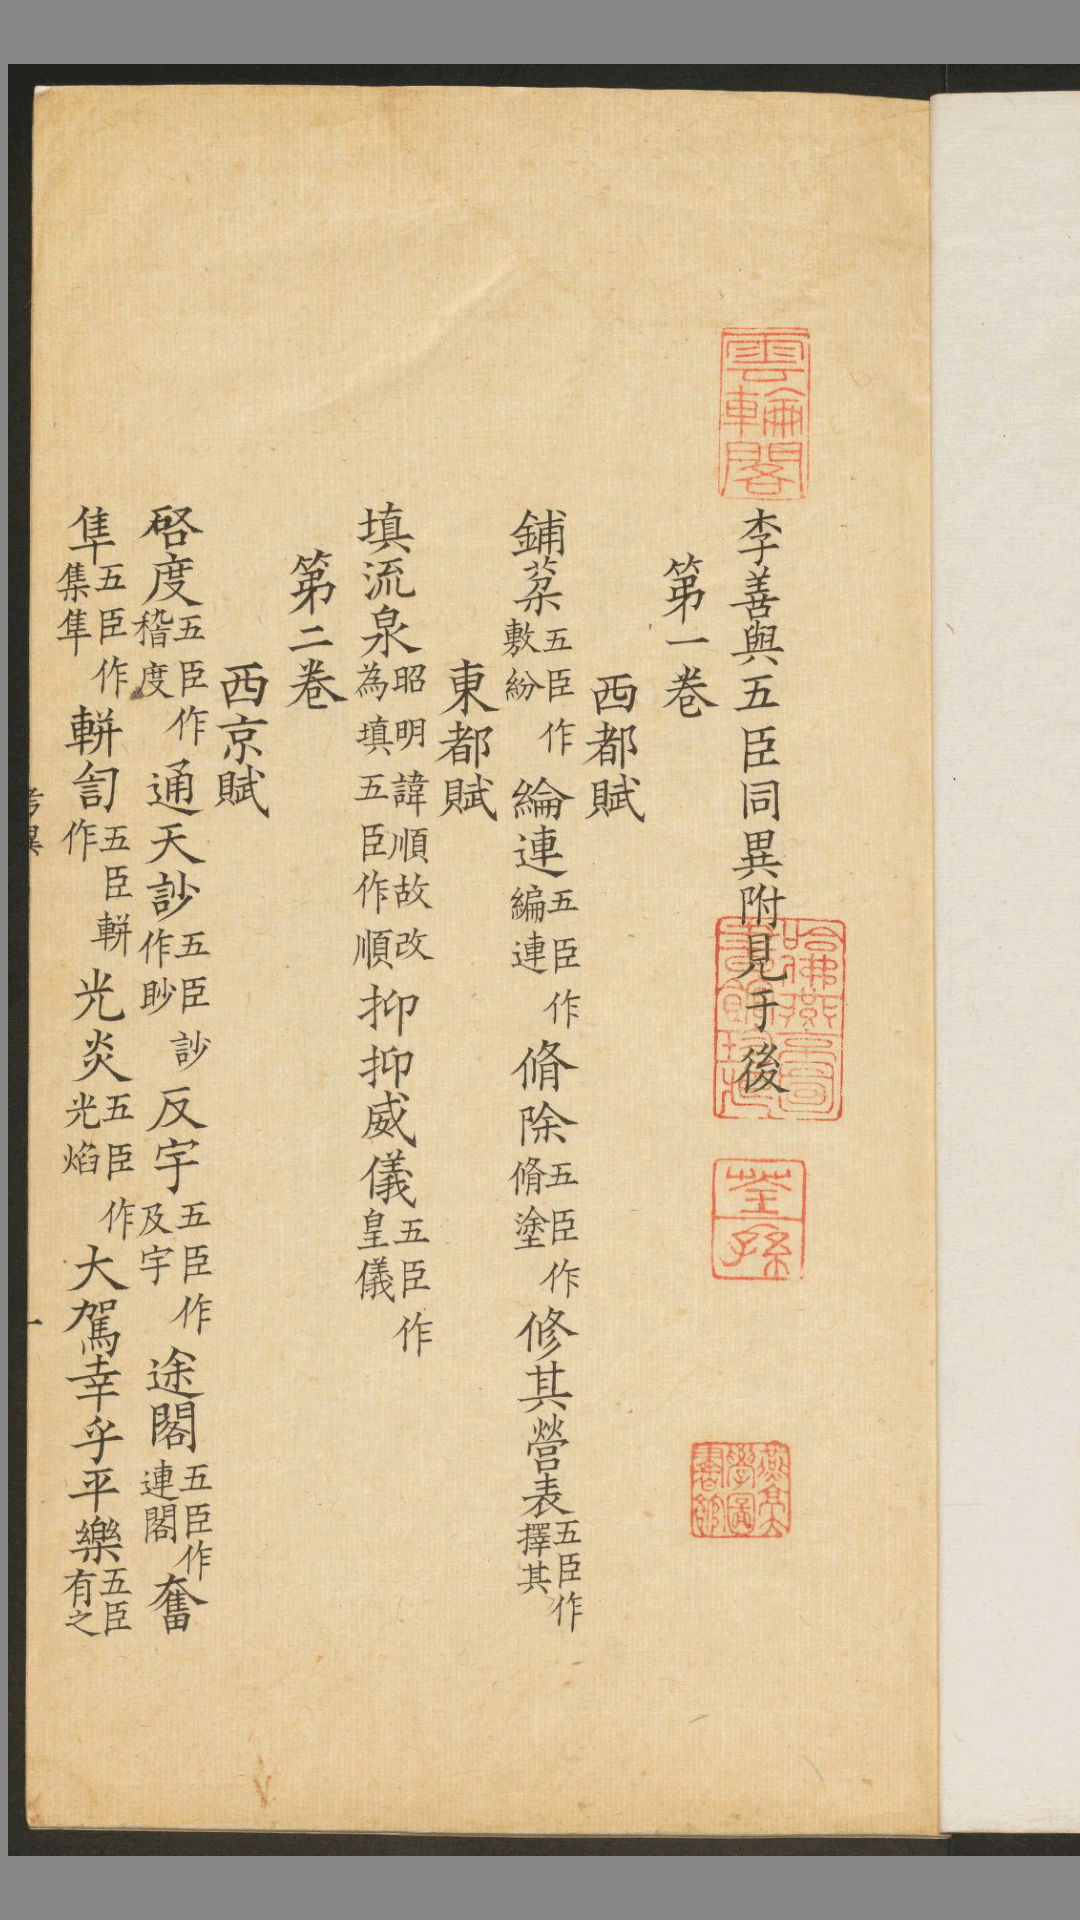 李善與五臣同異附見于後
第一卷
西都賦
鋪棻五臣作敷紛 綸連五臣作編連 脩除五臣作脩塗 修其營表五臣作擇其
東都賦
填流泉昭明諱順故改為填五臣作順 抑抑威儀五臣作皇儀
第二卷
西京賦
㗉度五臣作稽度 通天訬五臣訬作眇 反宇五臣作及宇 途閣五臣作連閣 奮
隼五臣作集隼 軿訇五臣軿作 光炎五臣作光焰 大駕幸乎平樂五臣有之
考異
一
雲輪閣
荃孫